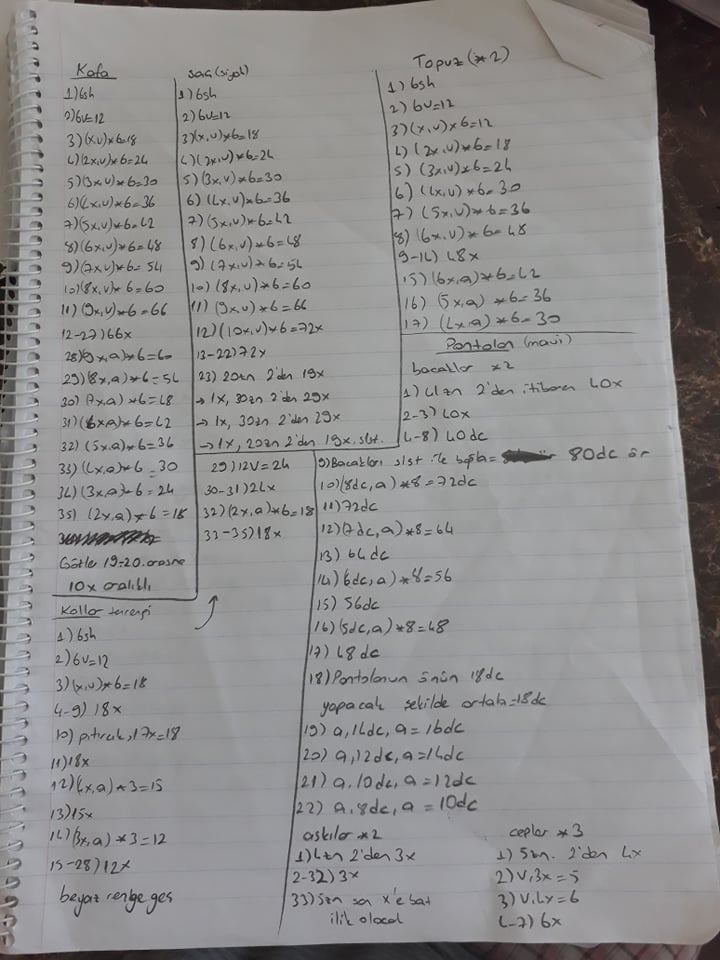 Kafa
1) 6sh
2) 6v=12
3) (x,v)*6=18
4) (2x,v)*6=24
5) (3x,v)*6=30
6) (4x,v)*6=36
7) (5x,v)*6=42
8) (6x,v)*6=48
9) (7x,v)*6=54
10) (8x,v)*6=60
11) (9x,v)*6=66
12-27) 66x
28) (9x,a)*6=60
29) (8x,a)*6=54
30) (7x,a)*6=48
31) (6x,a)*6=42
32) (5x,a)*6=36
33) (4x,a)*6=30
34) (3x,a)*6=24
35) (2x,a)*6=18
Gözler 19-20. arasına
10x aralıklı
Saç (siyah)
1) 6sh
2) 6v=12
3) (x,v)*6=18
4) (2x,v)*6=24
5) (3x,v)*6=30
6) (4x,v)*6=36
7) (5x,v)*6=42
8) (6x,v)*6=48
9) (7x,v)*6=54
10) (8x,v)*6=60
11) (9x,v)*6=66
12) (10x,v)*6=72x
13-22) 72x
23) 20zn 2'den 19x
→ 1x, 30zn 2'den 29x
→ 1x, 30zn 2'den 29x
→ 1x, 20zn 2'den 19x. slst.
Topuz (*2)
1) 6sh
2) 6v=12
3) (x,v)*6=12
4) (2x,v)*6=18
5) (3x,v)*6=24
6) (4x,v)*6=30
7) (5x,v)*6=36
8) (6x,v)*6=48
9-14) 48x
15) (6x,a)*6=42
16) (5x,a)*6=36
17) (4x,a)*6=30
Kollar tenrengi
1) 6sh
2) 6v=12
3) (x,v)*6=18
4-9) 18x
10) pıtırcık, 17x=18
11) 18x
12) (4x,a)*3=15
13) 15x
14) (3x,a)*3=12
15-28) 12x
beyaz renge geç
29) 12v=24
30-31) 24x
32) (2x,a)*6=18
33-35) 18x
Pantolon (mavi)
bacaklar *2
1) 41zn 2'den itibaren 40x
2-3) 40x
4-8) 40dc
9) Bacakları slst ile bağla= 80dc ör
10) (8dc,a)*8=72dc
11) 72dc
12) (7dc,a)*8=64
13) 64dc
14) (6dc,a)*8=56
15) 56dc
16) (5dc,a)*8=48
17) 48dc
18) Pantolonun önün 18dc
yapacak şekilde ortala=18dc
19) a,14dc,a=16dc
20) a,12dc,a=14dc
21) a,10dc,a=12dc
22) a,8dc,a=10dc
askılar *2
1) 4zn 2'den 3x
2-32) 3x
33) 5zn son x'e bat
ilik olacak
cepler *3
1) 5zn. 2'den 4x
2) v,3x=5
3) v,4x=6
4-7) 6x